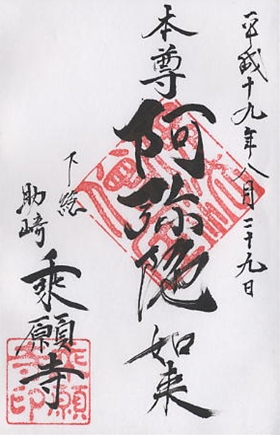 平成十九年八月二十九日
本尊
阿弥陀如来
下総
助崎
乗願寺
乗願
寺印